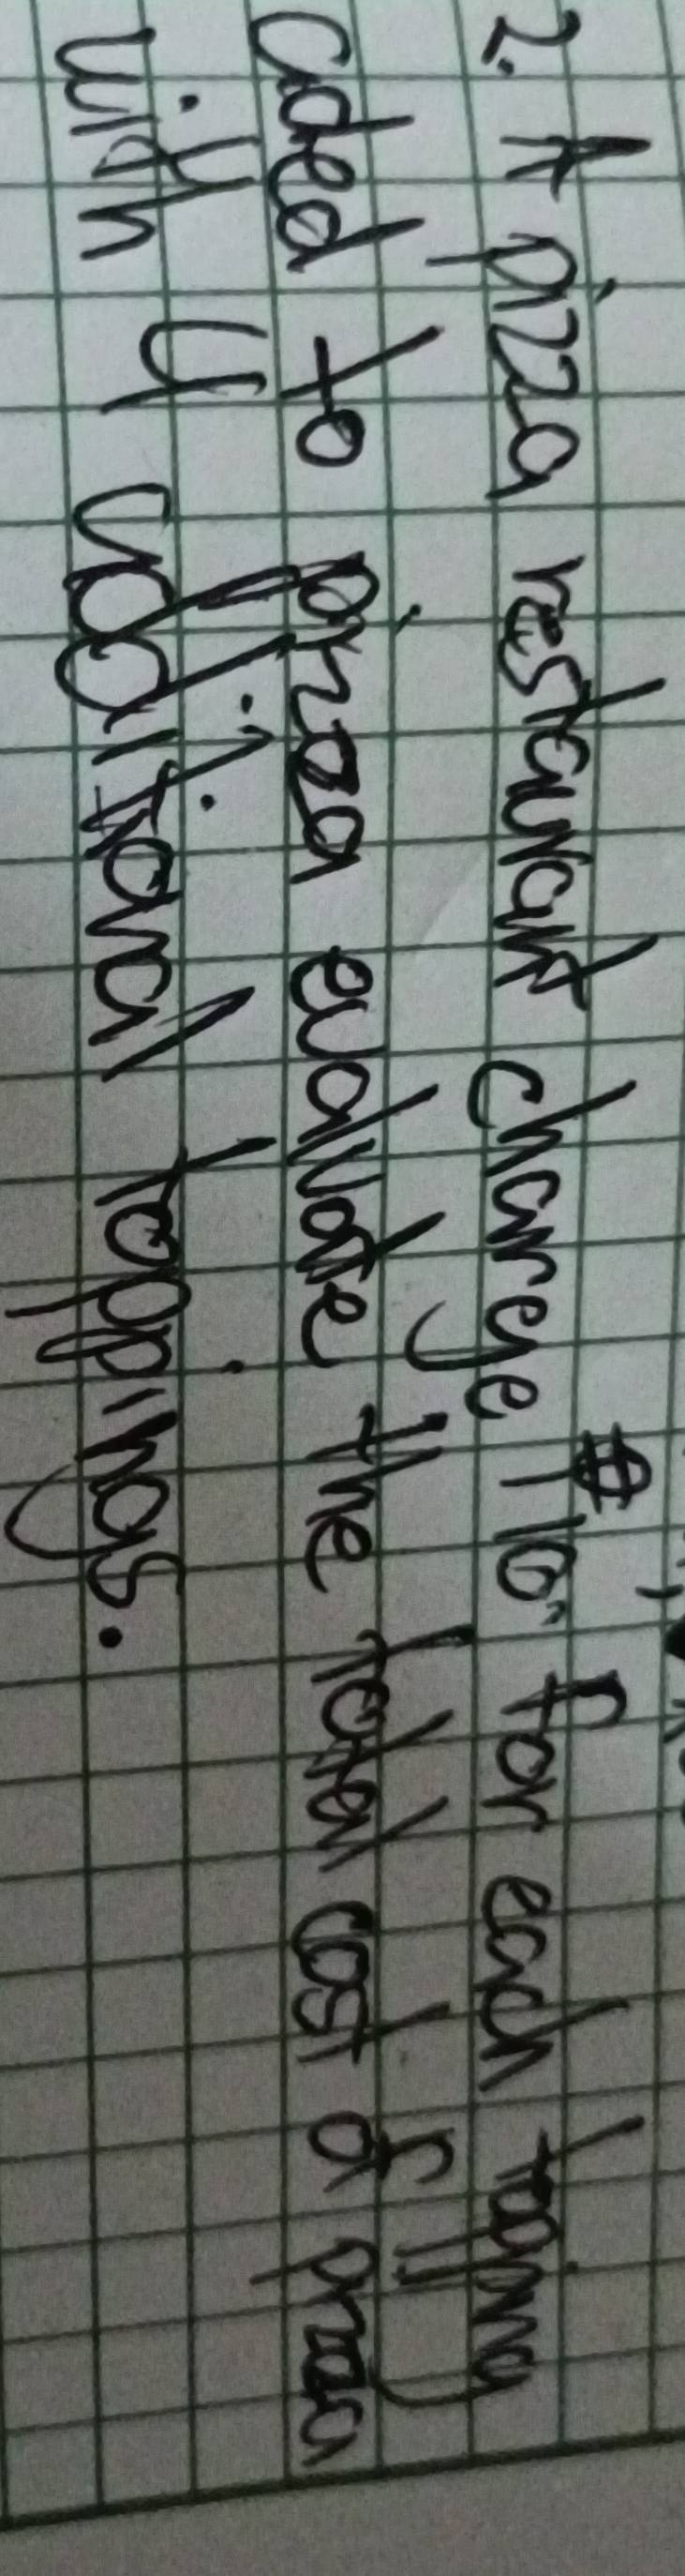 2. A pizza restaurant charge $110 for each topping
added to pizza evaluate the total cost of pizza
with 4 additional toppings.